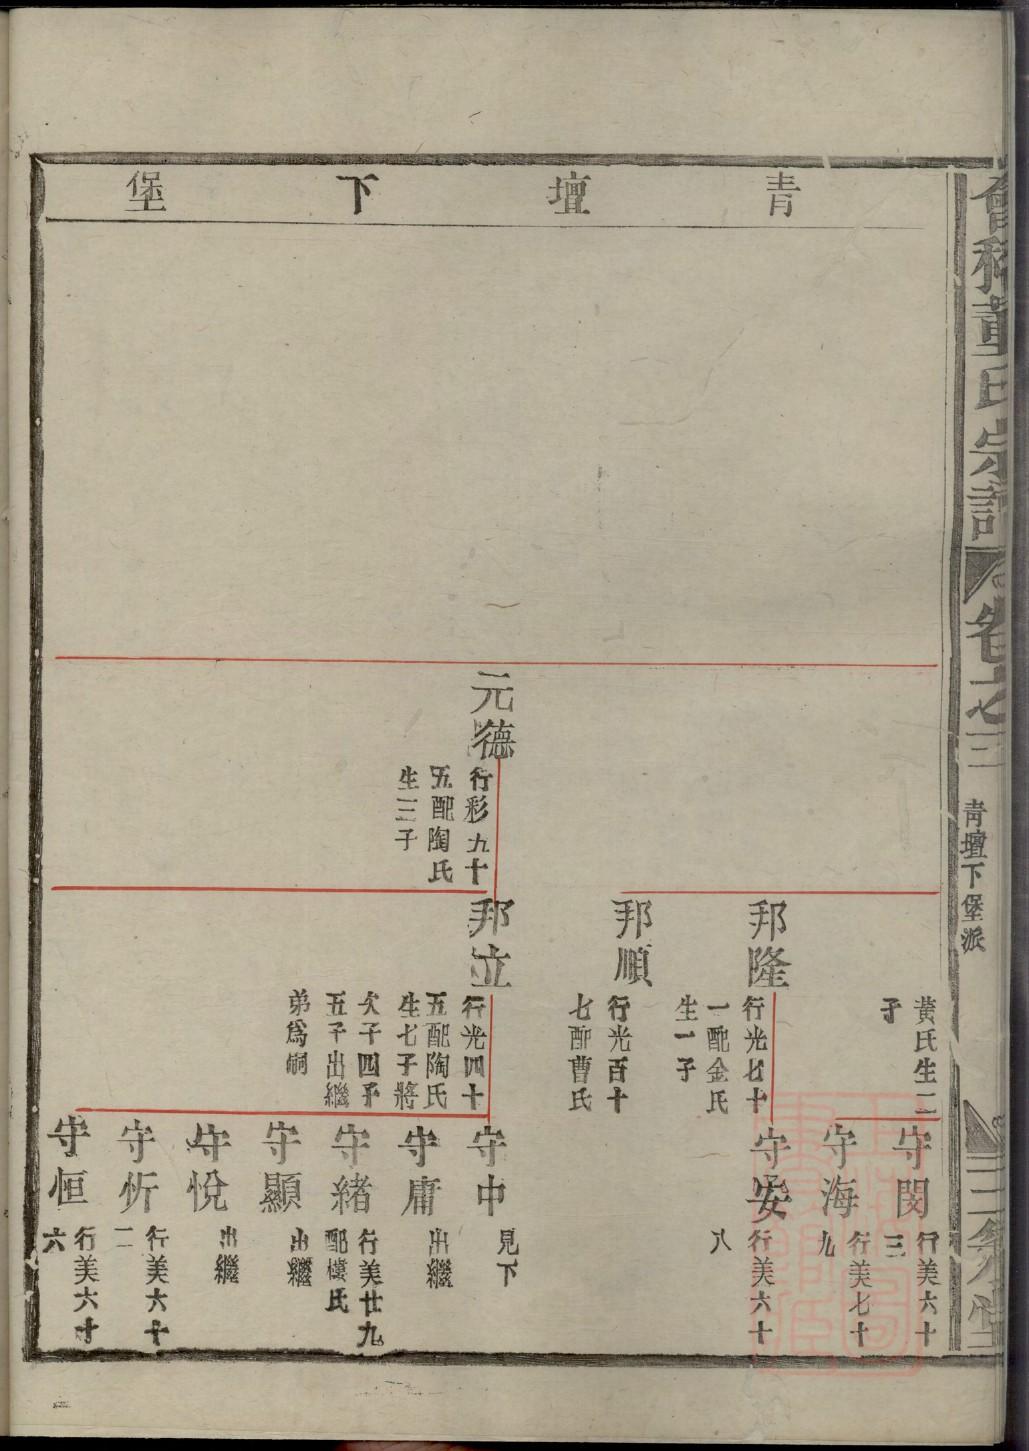 會稽董氏宗譜
卷之三
青壇下堡派
三策堂
青壇下堡
元德
行彩九十
五配陶氏
生三子
黃氏生二
子
邦隆
行光七十
一配金氏
生一子
邦順
行光百十
七配曹氏
邦立
行光四十
五配陶氏
生七子將
次子四子
五子出繼
弟為嗣
守閔
行美六十
三
守海
行美七十
九
守安
行美六十
八
守中
見下
守庸
出繼
守緒
行美廿九
配樓氏
守顯
出繼
守悅
出繼
守忻
行美六十
二
守恒
行美六十
六